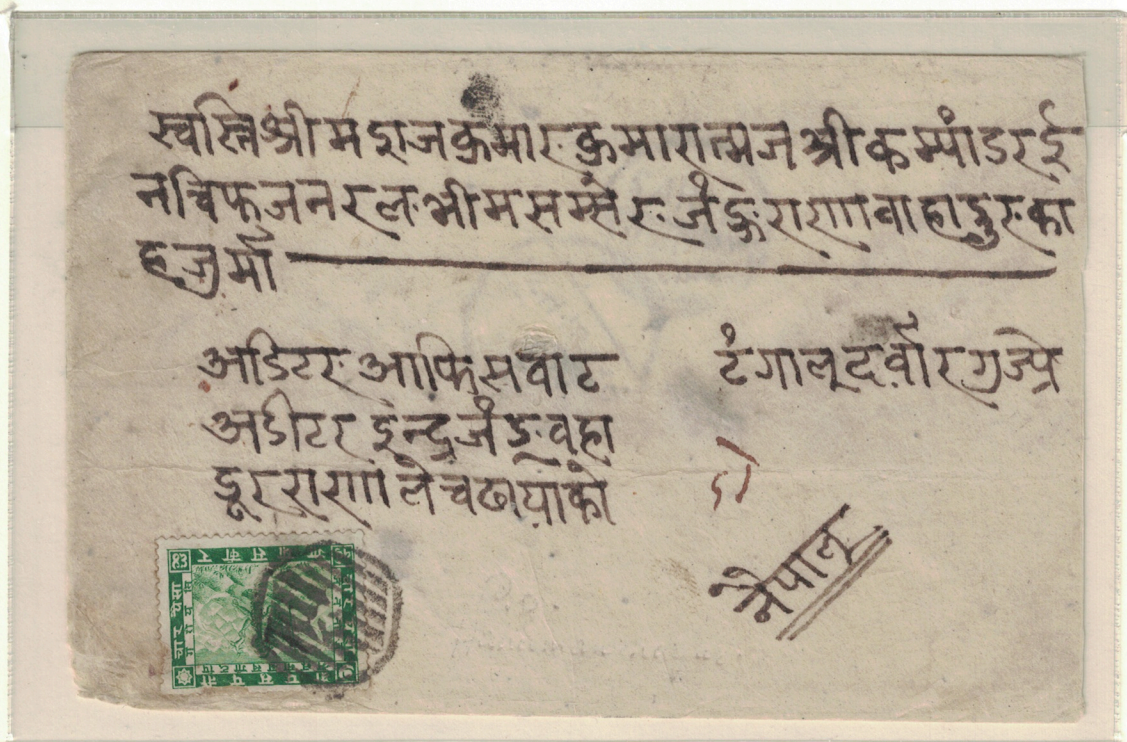 स्वस्तिश्रीमद्राजकुमारकुमारात्मजश्रीकम्यांडरई
नचिफजनरलभीमसम्सेरजंङ्गराणावाहादुरका
हजुर्मा
अडिटर आफिसवाट
अडीटर इन्द्रजंङ्वहा
दूरराणाले चढायाको
टंगाल् दर्वार
नेपाल्
चार पैसा